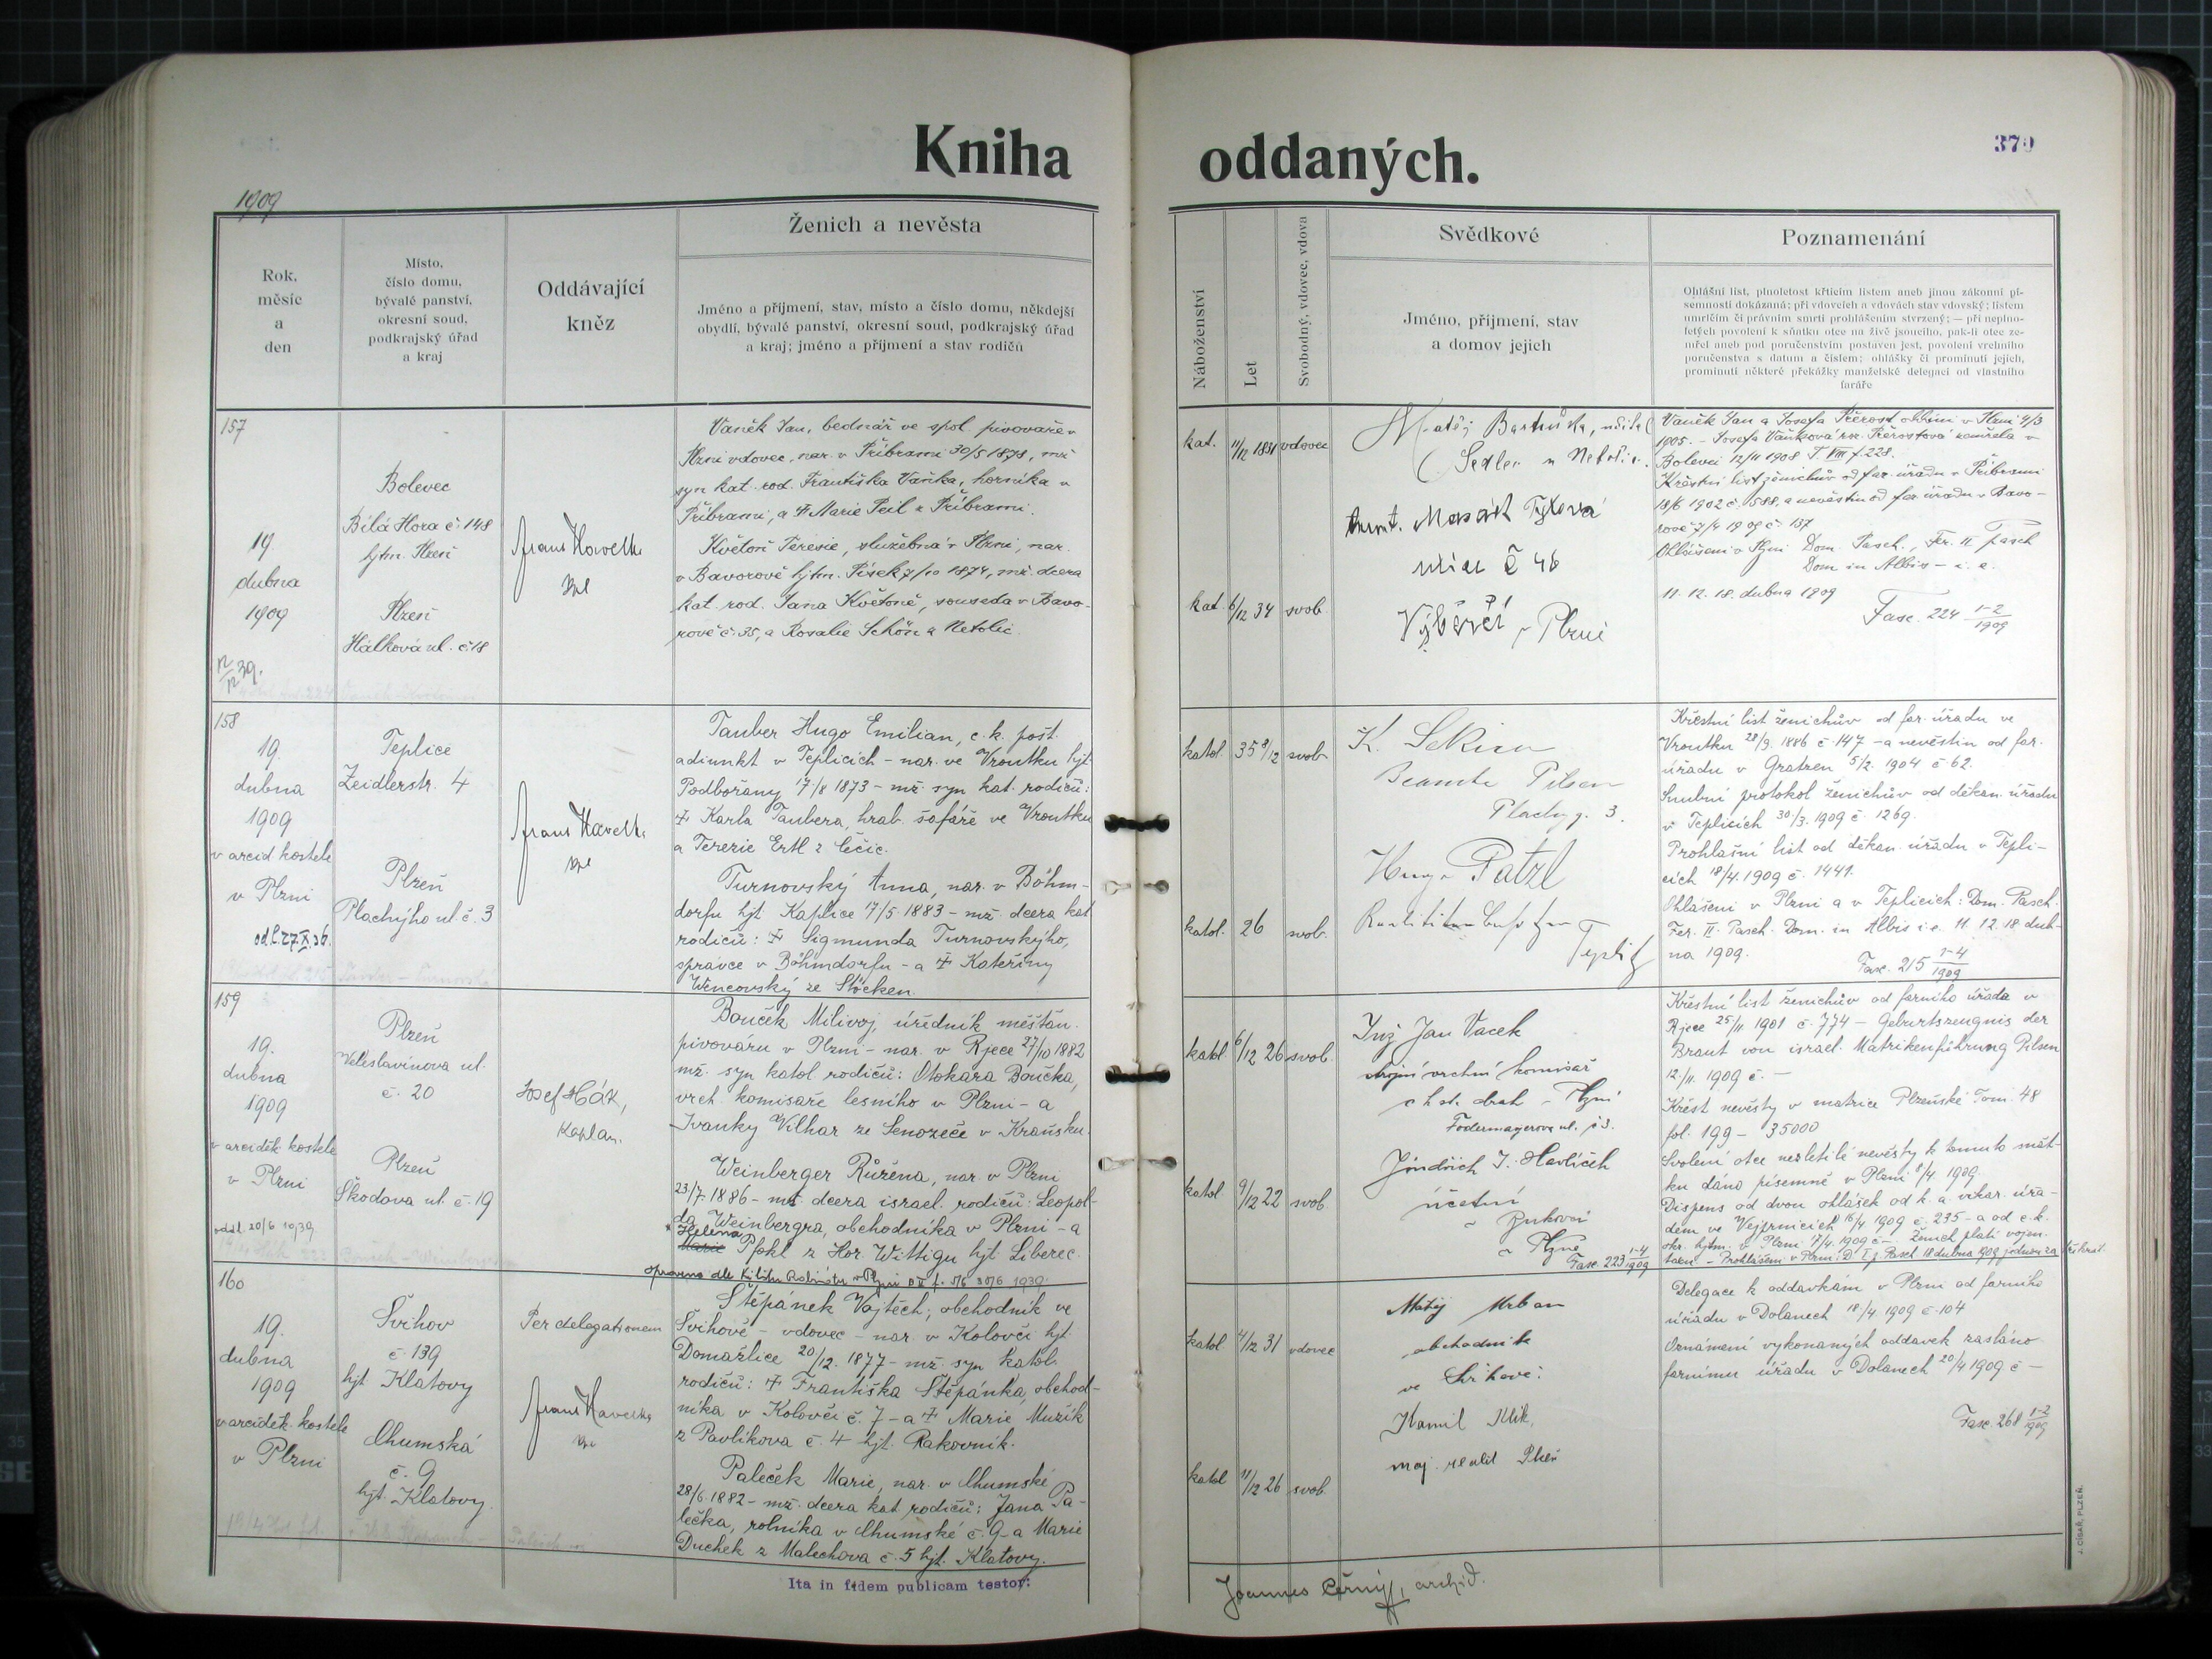 Kniha oddaných.
370
1909
Rok,
měsíc
a
den
Místo,
číslo domu,
bývalé panství,
okresní soud,
podkrajský úřad
a kraj
Oddávající
kněz
Ženich a nevěsta
Jméno a příjmení, stav, místo a číslo domu, někdejší
obydlí, bývalé panství, okresní soud, podkrajský úřad
a kraj; jméno a příjmení a stav rodičů
Náboženství
Let
Svobodný, vdovec, vdova
Svědkové
Jméno, příjmení, stav
a domov jejich
Poznamenání
Ohlášní list, plnoletost křticím listem aneb jinou zákonní pí-
semností dokázaná; při vdovcích a vdovách stav vdovský; listem
umrlčím či právním smrti prohlášením stvrzený; — při neplno-
letých povolení k sňatku otce na živě jsoucího, pak-li otec ze-
mřel aneb pod poručenstvím postaven jest, povolení vrchního
poručenstva s datum a číslem; ohlášky či prominutí jejich,
prominutí některé překážky manželské delegací od vlastního
faráře
157
19.
dubna
1909
Bolevec
Bílá Hora č. 148
hjtm. Plzeň
Plzeň
Hálkova ul. č. 18
Franc Havelka
kpl
Vaněk Jan, bednář ve spol. pivovaře v
Plzni vdovec, nar. v Příbrami 30/5 1878, mž.
syn kat. rod. Františka Vaňka, horníka v
Příbrami, a † Marie Peil z Příbrami.
Květoň Terezie, služebná v Plzni, nar.
v Bavorově hjtm. Písek 7/10 1874, mž. dcera
kat. rod. Jana Květoně, souseda v Bavo-
rově č. 35, a Rosalie Schön z Netolic.
kat.
vdovec
kat. 6/12 34 svob.
Matěj Bartuška, učitel
Sedlec u Netolic.
Masařk Tylova
ulice č 46
Výběrčí v Plzni
Vaněk Jan a Josefa Přerost oddáni v Plzni 4/3
1905. – Josefa Vaňková roz. Přerostová zemřela v
Bolevci 12/11 1908 T. VIII f. 228.
Křestní list ženichův od far. úřadu v Příbrami
18/6 1902 č. 588, a nevěstin od far. úřadu v Bavo-
rově 7/4 1909 č. 137
Ohlášeni v Plzni Dom. Pasch., Fer. II pasch
Dom in Albis – i. e.
11. 12. 18. dubna 1909
Fasc. 224 1-2/1909
158
19.
dubna
1909
v arcid kostele
v Plzni
od.l. 27.X.36.
Teplice
Zeidlerstr. 4
Plzeň
Plachýho ul. č. 3
Franc Havelka
kpl
Tauber Hugo Emilian, c. k. pošt.
adjunkt v Teplicích – nar. ve Vroutku hjt
Podbořany 17/8 1873 – mž. syn kat. rodičů:
† Karla Taubera, hrab. šafáře ve Vroutku
a Terezie Ertl z Čečic.
Turnovský Anna, nar. v Böhm-
dorfu hjt Kaplice 17/5 1883 – mž. dcera kat
rodičů: † Sigmunda Turnovskýho,
správce v Böhmdorfu – a † Kateřiny
Wencovský ze Stöcken.
katol. 35 8/12 svob.
katol. 26 svob.
K.
Beamte Pilsen
Plachy g. 3.
Hugo Patzl
Teplitz
Křestní list ženichův od far. úřadu ve
Vroutku 28/9. 1886 č 147 – a nevěstin od far.
úřadu v Gratzen 5/2. 1904 č. 62.
Snubní protokol ženichův od děkan. úřadu
v Teplicích 30/3. 1909 č. 1269.
Prohlašní list od děkan. úřadu v Tepli-
cích 18/4. 1909 č. 1441.
Ohlášeni v Plzni a v Teplicích: Dom. Pasch.
Fer. II. Pasch. Dom. in Albis i. e. 11. 12. 18 dub-
na 1909.
Fasc. 215 1-4/1909
159
19.
dubna
1909
v arciděk. kostele
v Plzni
odd.l. 20/6 1939
Plzeň
Veleslavínova ul.
č. 20
Plzeň
Škodova ul. č. 19
Josef Hák,
Kaplan.
Bouček Milivoj, úředník měšťan.
pivovaru v Plzni – nar. v Rjece 27/10 1882
mž. syn katol rodičů: Otokara Boučka,
vrch komisaře lesního v Plzni – a
Ivanky Vilhar ze Senožeče v Kraňsku.
Weinberger Růžena, nar v Plzni
23/7. 1886 – mž. dcera israel. rodičů: Leopol-
da Weinbergra, obchodníka v Plzni – a
* Helena
Marie Pfokl z Hor. Wittigu hjt Liberec.
katol 6/12 26 svob.
katol 9/12 22 svob.
Inž Jan Vacek
strojní vrchní komisař
c k st. drah – Plzni
Fodermayerova ul. č 3.
Jindřich J. Havlíček
účetní
v Plzně
Křestní list ženichův od farního úřadu v
Rjece 25/11. 1901 č. 774 – Geburtszeugnis der
Braut von israel. Matrikenführung Pilsen
12./11. 1909 č. –
Křest nevěsty v matrice Plzeňské Tom. 48
fol. 199 – 35000
Svolení otce nezletilé nevěsty k tomuto sňat-
ku dáno písemně v Plzni 8/4. 1909
Dispens od dvou ohlášek od k. a. vikar. úřa-
dem ve Vejprnicích 16/4 1909 č. 235 – a od c. k.
okr. hjtm. v Plzni 17/4. 1909 č – . Ženich platí vojen.
taxu – Prohlášeni v Plzni: D. I. p. Pasch. 18 dubna 1909 jednou za třikrát.
Fasc. 223 1-4/1909
160
19.
dubna
1909
v arciděk. kostele
v Plzni
Švihov
č. 139
hjt Klatovy
Chumská
č. 9
hjt. Klatovy.
Per delegationem
Franc Havelka
kpl
Štěpánek Vojtěch, obchodník ve
Švihově – vdovec – nar. v Kolovči hjt
Domažlice 20/12. 1877 – mž. syn katol.
rodičů: † Františka Štěpánka, obchod-
níka v Kolovči č. 7 – a † Marie Mužík
z Pavlíkova č. 4 hjt. Rakovník.
Paleček Marie, nar. v Chumské
28/6. 1882 – mž. dcera kat rodičů: Jana Pa-
lečka, rolníka v Chumské č. 9 – a Marie
Duchek z Malechova č. 5 hjt. Klatovy.
katol 4/12 31 vdovec
katol 11/12 26 svob.
Matěj Urban
obchodník
ve Švihově.
Kamil Klik,
maj. realit Plzeň
Delegace k oddavkám v Plzni od farního
úřadu v Dolanech 18/4 1909 č. 104
Oznámení vykonaných oddavek zasláno
farnímu úřadu v Dolanech 20/4 1909 č –
Fasc. 268 1-2/1909
Ita in fidem publicam testor:
Joannes Černý, archid.
J. CÍSAŘ, PLZEŇ.